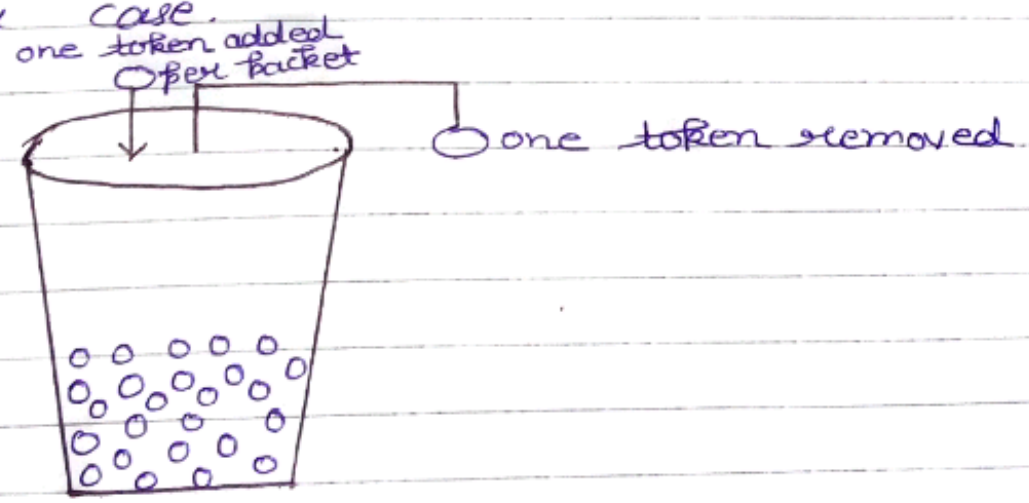 case.
one token added
per packet
one token removed